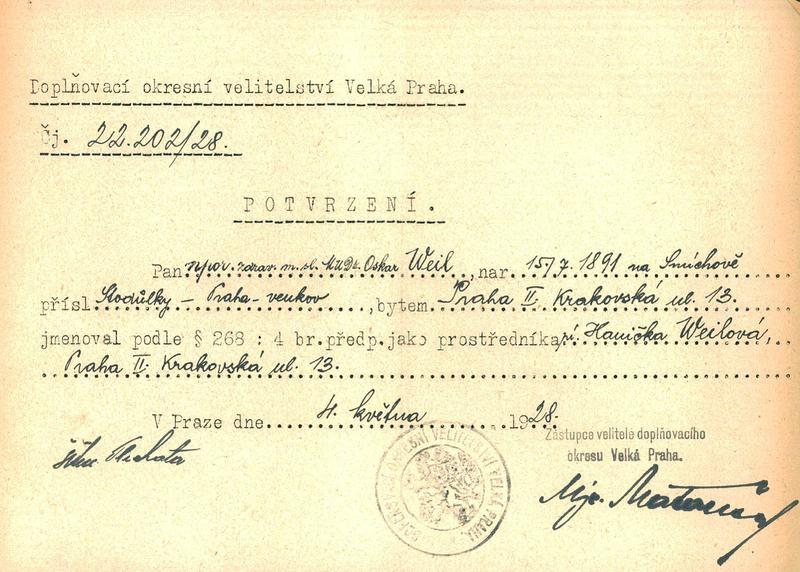 Doplňovací okresní velitelství Velká Praha.
Čj. 22.202/28.
POTVRZENÍ.
Pan npor. zdrav. m. sl. MUDr. Oskar Weil, nar. 15/7. 1891 na Smíchově
přísl. Stodůlky – Praha-venkov, bytem Praha II. Krakovská ul. 13.
jmenoval podle § 268 : 4 br.předp.jako prostředníka pí. Hanička Weilová,
Praha II. Krakovská ul. 13.
V Praze dne 4. května 1928.
Zástupce velitele doplňovacího
okresu Velká Praha.
škpt.
Mjr.
OKRESNÍ VELITELSTVÍ VELKÁ PRAHA